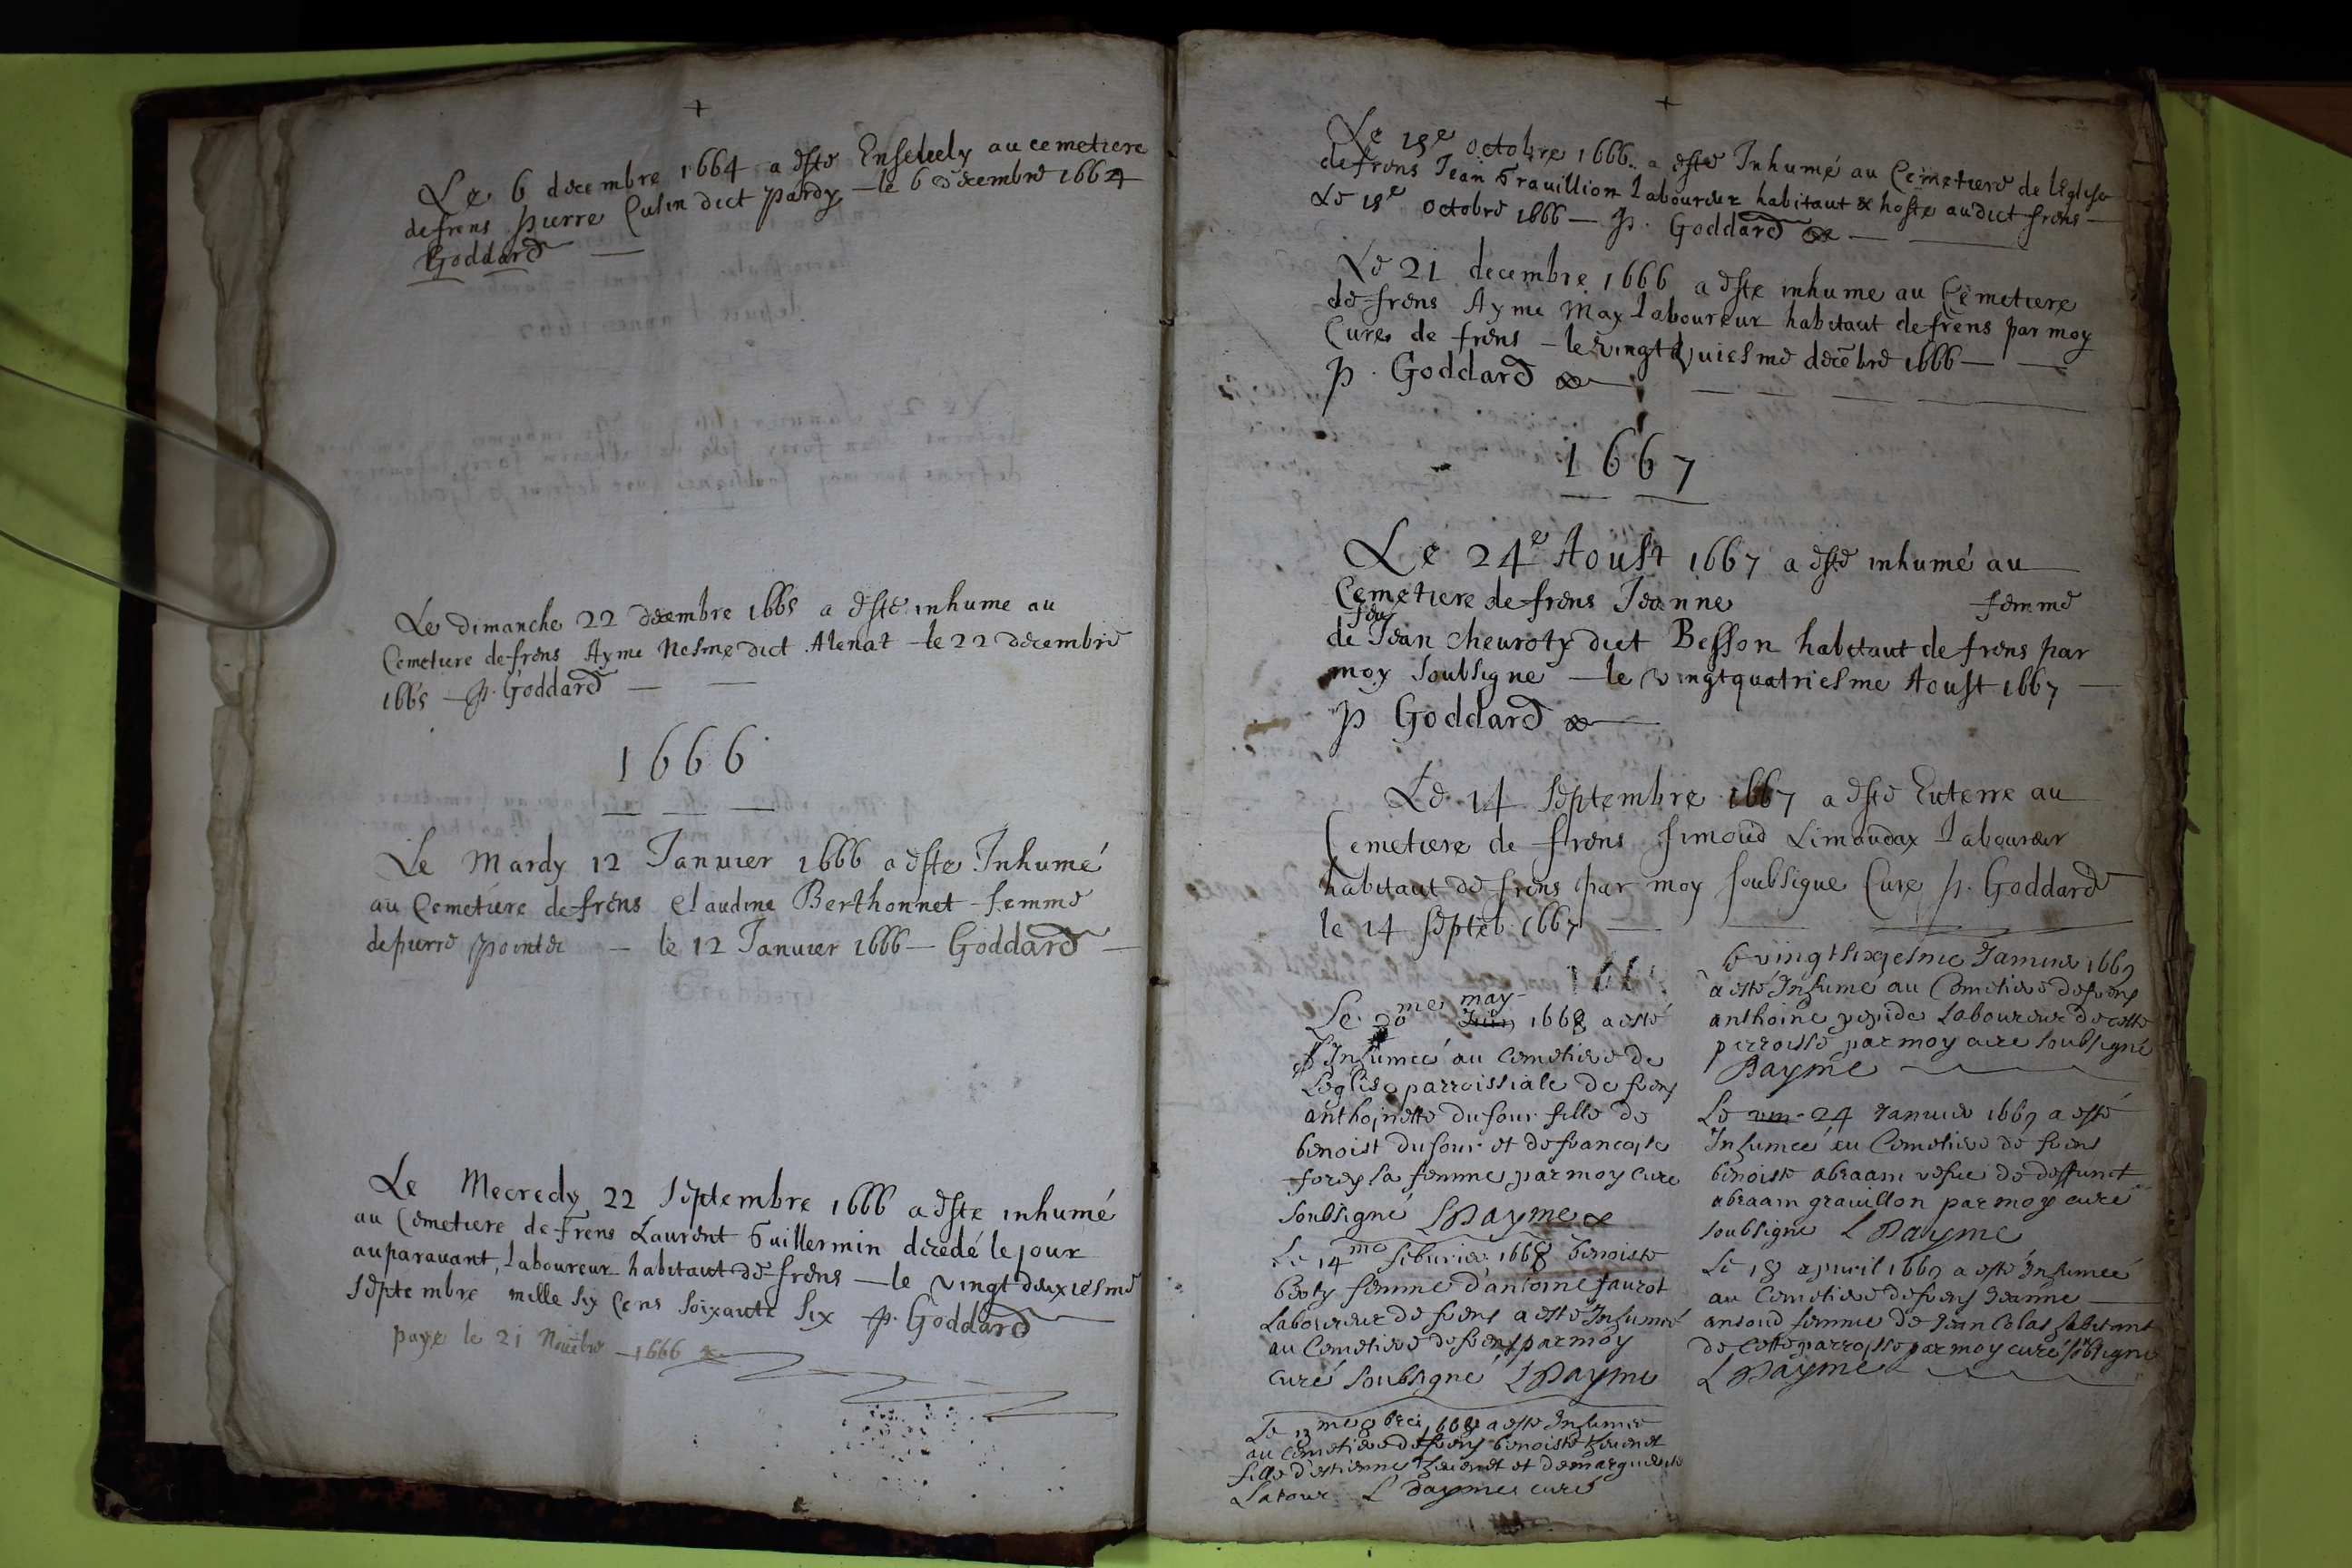 +
Le 6 decembre 1664 a esté Ensevely au cemetiere
de frens pierre Cusin dict pardy — le 6 decembre 1664
Goddard —
Le dimanche 22 decembre 1665 a esté inhume au
Cemetiere de frens Ayme Nesme dict Alenat — le 22 decembre
1665 — p. Goddard — —
1666
Le Mardy 12 Januier 1666 a esté Inhumé
au Cemetiere de frens Claudine Berthonnet femme
de pierre — le 12 Januier 1666 — Goddard —
Le Mecredy 22 Septembre 1666 a esté inhumé
au Cemetiere de Frens Laurent Guillermin decedé le jour
auparauant, laboureur habitant de frens — le vingt deuxiesme
Septembre mille six cens soixante six p. Goddard
paye le 21 Nouēbre — 1666
+
Le 18e octobre 1666 a esté Inhumé au Cemetiere de l'Eglise
de frens Jean Grauillion laboureur habitant & hoste au dict frens —
Le 18e octobre 1666 — p. Goddard —
Le 21 decembre 1666 a esté inhume au Cemetiere
de frens Ayme May laboureur habitant de frens par moy
Cure de frens — le decēbre 1666 —
p. Goddard —
1667
Le 24e Aoust 1667 a esté inhumé au
Cemetiere de frens Jeanne femme
feu
de Jean cheuroty dict Besson habitant de frens par
moy soubsigne — le vingtquatriesme Aoust 1667 —
p Goddard —
Le 14 Septembre 1667 a esté Enterre au
Cemetiere de frens simoud Limandax laboureur
habitant de frens par moy soubsigne Cure p. Goddard
le 14 septēb. 1667 —
may
Le 20me Juin 1668 a esté
Inhumeé au cemetiere de
L'eglise parroissiale de frens
anthoinette dufour fille de
benoist dufour et de francoise
forey sa femme par moy cure
soubsigné L Dayme
Le 14me feburier 1668 benoiste
femme d'antoine faurot
Laboureur de frens a esté Inhumeé
au Cemetiere de frens par moy
curé soubsigné L Dayme
Le 1668 a esté Inhumee
au cemetiere de frens benoiste
fille d'estienne et de marguerite
Latour L dayme curé
Le vingtsixiesme Januier 1669
a esté Inhume au Cemetiere de frens
anthoine Laboureur de cette
perroisse par moy cure soubsigné
Dayme
Le ven 24 Januier 1669 a esté
Inhumeé au Cemetiere de frens
benoiste abraam vefue de deffunct
abraam grauillon par moy curé
soubsigne L Dayme
Le 18 apuril 1669 a esté Inhumeé
au Cemetiere de frens Jeanne —
ansoud femme de Jean Colas habitant
de cette parroisse par moy curé sōbsigne
L Dayme